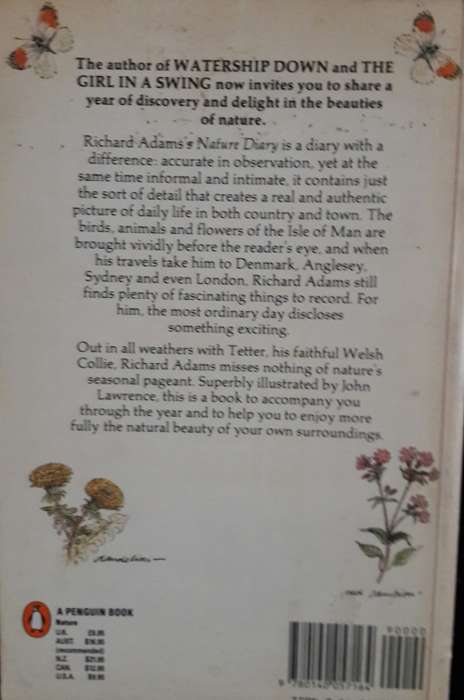 The author of WATERSHIP DOWN and THE
GIRL IN A SWING now invites you to share a
year of discovery and delight in the beauties
of nature.
Richard Adams's Nature Diary is a diary with a
difference: accurate in observation, yet at the
same time informal and intimate, it contains just
the sort of detail that creates a real and authentic
picture of daily life in both country and town. The
birds, animals and flowers of the Isle of Man are
brought vividly before the reader's eye, and when
his travels take him to Denmark, Anglesey,
Sydney and even London, Richard Adams still
finds plenty of fascinating things to record. For
him, the most ordinary day discloses
something exciting.
Out in all weathers with Tetter, his faithful Welsh
Collie, Richard Adams misses nothing of nature's
seasonal pageant. Superbly illustrated by John
Lawrence, this is a book to accompany you
through the year and to help you to enjoy more
fully the natural beauty of your own surroundings.
A PENGUIN BOOK
Nature
U.K.
AUST.
(recommended)
N.Z.
CAN.
U.S.A.
90000
9 780140 057164